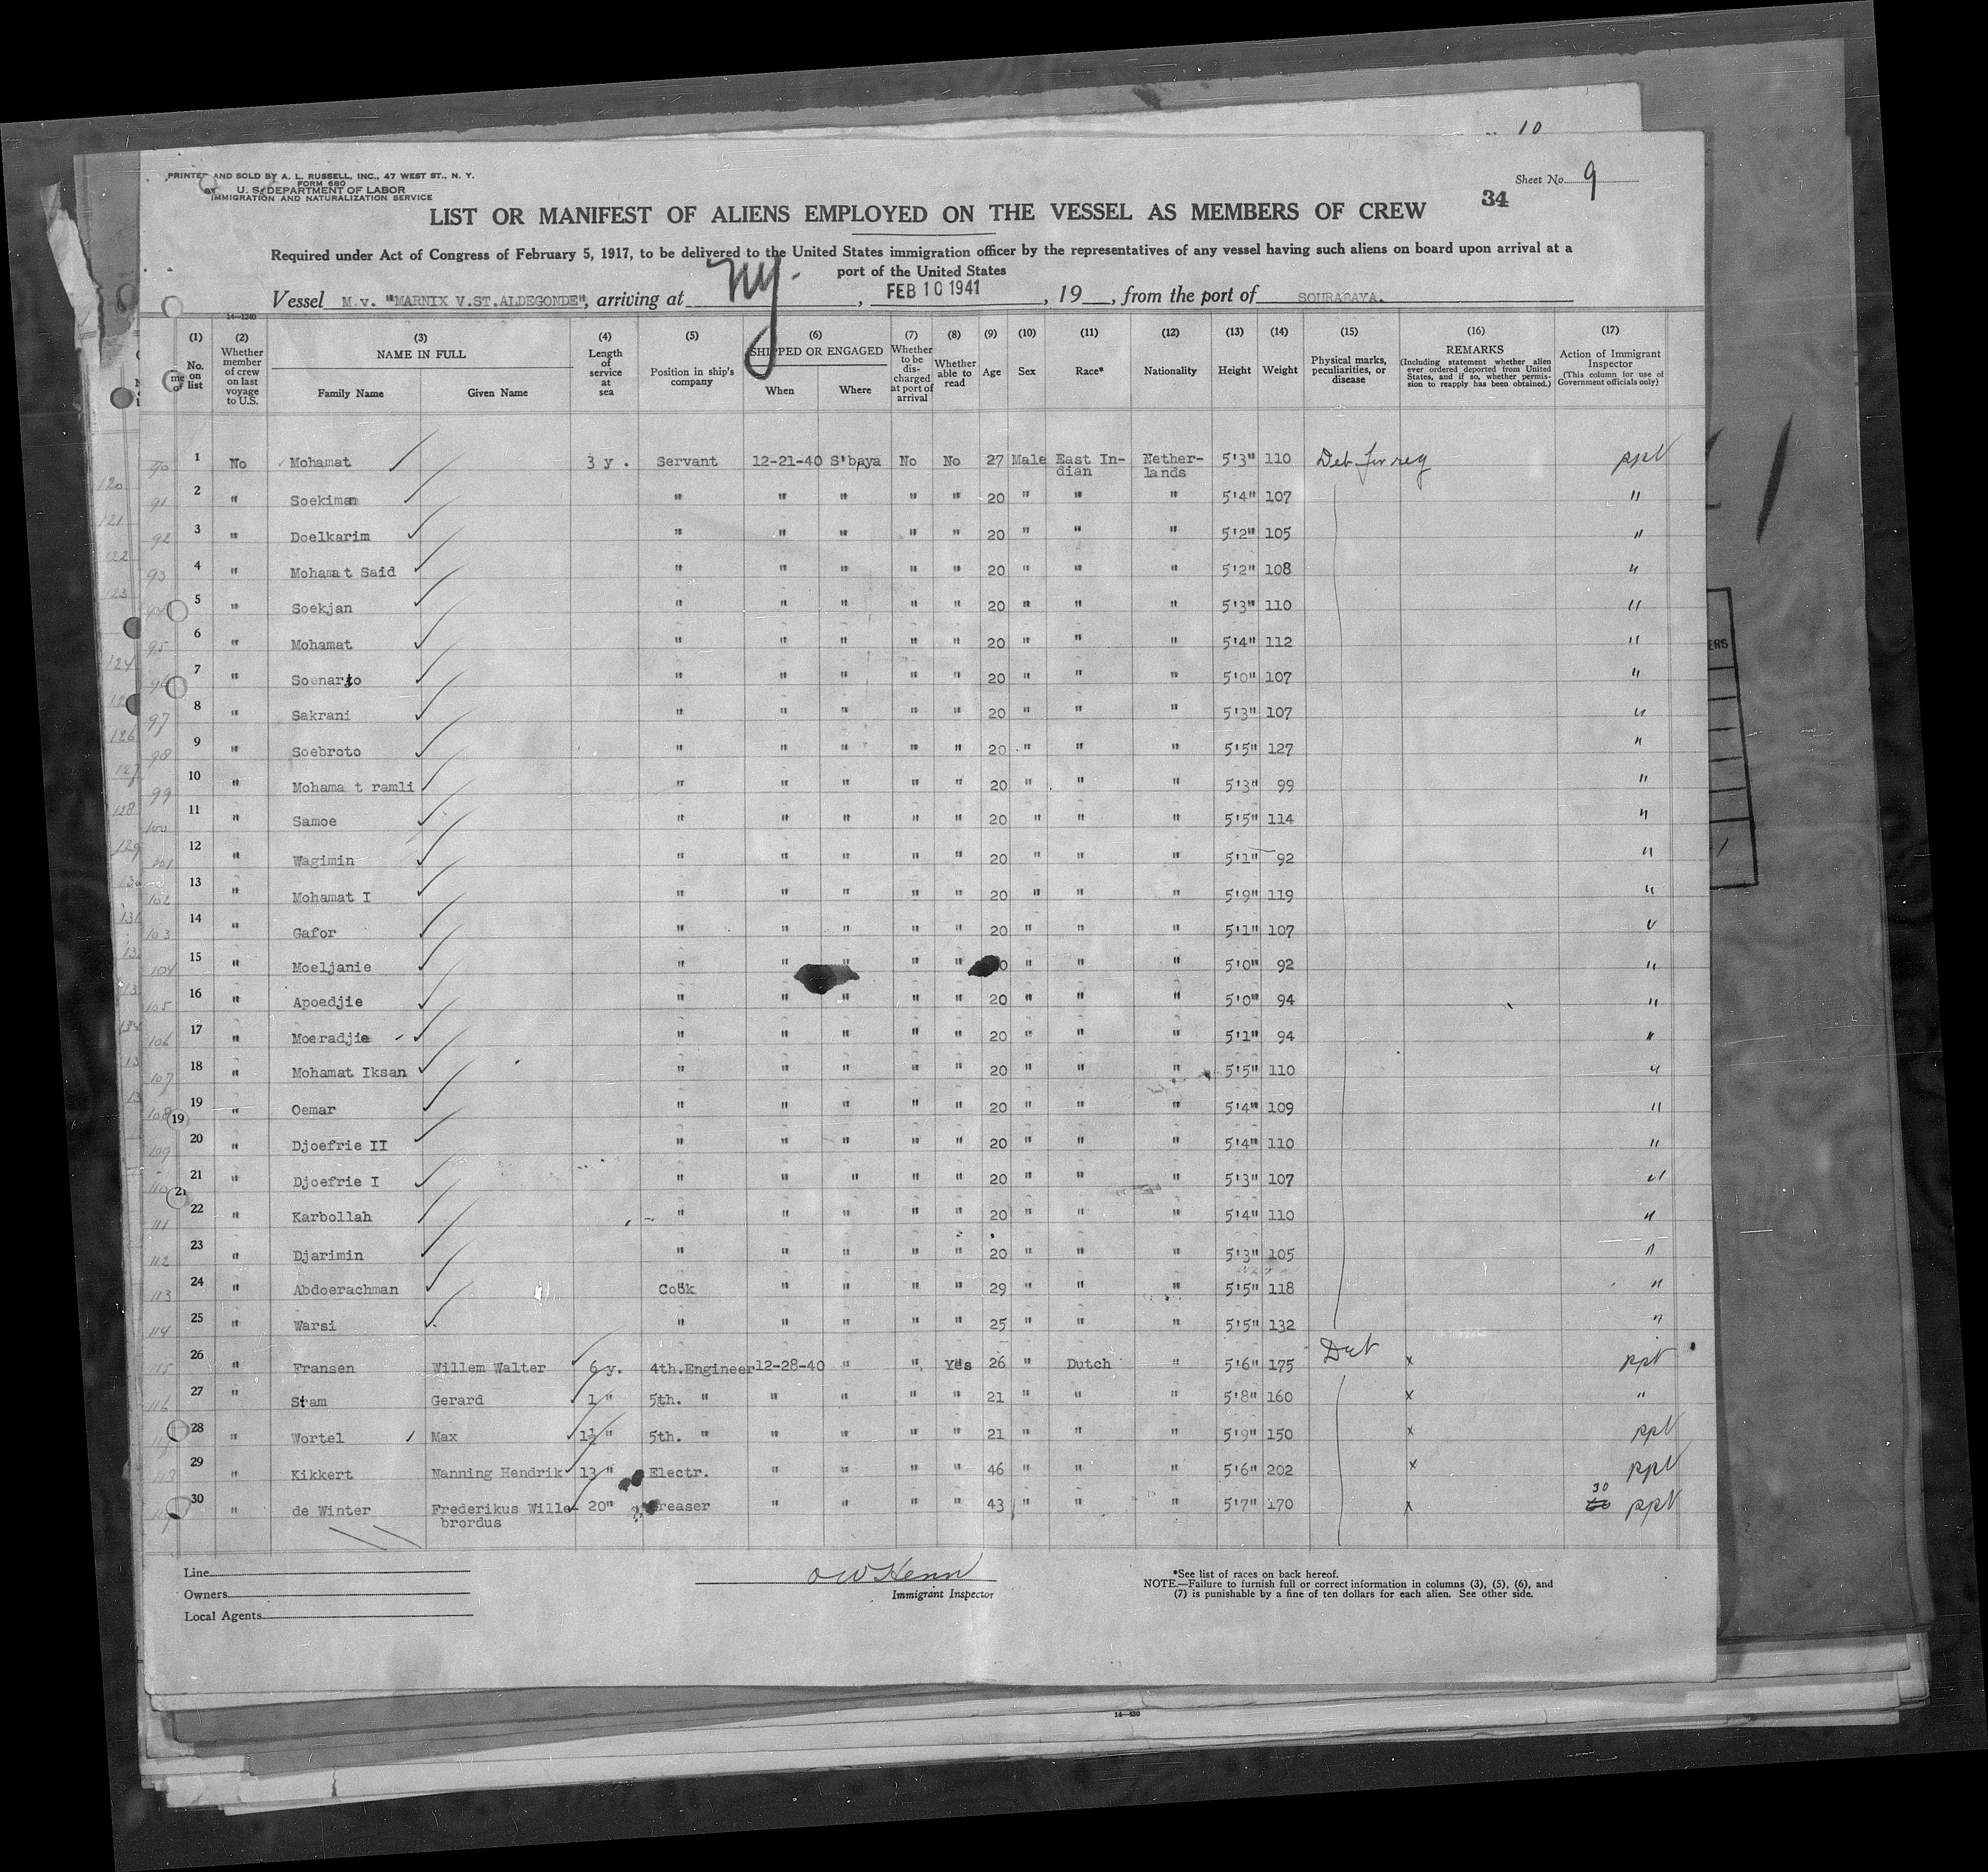 10
PRINTED AND SOLD BY A. L. RUSSELL, INC., 47 WEST ST., N. Y.
FORM 680
U. S. DEPARTMENT OF LABOR
IMMIGRATION AND NATURALIZATION SERVICE
Sheet No. 9
34
LIST OR MANIFEST OF ALIENS EMPLOYED ON THE VESSEL AS MEMBERS OF CREW
Required under Act of Congress of February 5, 1917, to be delivered to the United States immigration officer by the representatives of any vessel having such aliens on board upon arrival at a
port of the United States
Vessel M.v. "MARNIX V.ST.ALDEGONDE", arriving at NY., FEB 10 1941, 19__, from the port of SOURABAYA.
14-1240
(1) (2) (3) (4) (5) (6) (7) (8) (9) (10) (11) (12) (13) (14) (15) (16) (17)
No. on list
Whether member of crew on last voyage to U.S.
NAME IN FULL
Family Name Given Name
Length of service at sea
Position in ship's company
SHIPPED OR ENGAGED
When Where
Whether to be discharged at port of arrival
Whether able to read
Age Sex Race* Nationality Height Weight
Physical marks, peculiarities, or disease
REMARKS
(Including statement whether alien ever ordered deported from United States, and if so, whether permission to reapply has been obtained.)
Action of Immigrant Inspector
(This column for use of Government officials only)
1 No Mohamat 3 y. Servant 12-21-40 S'baya No No 27 Male East Indian Netherlands 5'3" 110 ppt
2 " Soekiman " " " " " 20 " " " 5'4" 107 "
3 " Doelkarim " " " " " 20 " " " 5'2" 105 "
4 " Mohamat Said " " " " " 20 " " " 5'2" 108 "
5 " Soekjan " " " " " 20 " " " 5'3" 110 "
6 " Mohamat " " " " " 20 " " " 5'4" 112 "
7 " Soenarto " " " " " 20 " " " 5'0" 107 "
8 " Sakrani " " " " " 20 " " " 5'3" 107 "
9 " Soebroto " " " " " 20 " " " 5'5" 127 "
10 " Mohama t ramli " " " " " 20 " " " 5'3" 99 "
11 " Samoe " " " " " 20 " " " 5'5" 114 "
12 " Wagimin " " " " " 20 " " " 5'1" 92 "
13 " Mohamat I " " " " " 20 " " " 5'9" 119 "
14 " Gafor " " " " " 20 " " " 5'1" 107 "
15 " Moeljanie " " " " " " " " 5'0" 92 "
16 " Apoedjie " " " " " 20 " " " 5'0" 94 "
17 " Moeradjie " " " " " 20 " " " 5'1" 94 "
18 " Mohamat Iksan " " " " " 20 " " " 5'5" 110 "
19 " Oemar " " " " " 20 " " " 5'4" 109 "
20 " Djoefrie II " " " " " 20 " " " 5'4" 110 "
21 " Djoefrie I " " " " " 20 " " " 5'3" 107 "
22 " Karbollah " " " " " 20 " " " 5'4" 110 "
23 " Djarimin " " " " " 20 " " " 5'3" 105 "
24 " Abdoerachman Cook " " " " 29 " " " 5'5" 118 "
25 " Warsi " " " " " 25 " " " 5'5" 132 "
26 " Fransen Willem Walter 6 y. 4th.Engineer 12-28-40 " " Yes 26 " Dutch " 5'6" 175 x ppt
27 " Stam Gerard 1 " 5th. " " " " " 21 " " " 5'8" 160 x "
28 " Wortel Max 1½ " 5th. " " " " " 21 " " " 5'9" 150 x ppt
29 " Kikkert Nanning Hendrik 13 " Electr. " " " " 46 " " " 5'6" 202 x ppt
30 " de Winter Frederikus Wille- 20" Greaser " " " " 43 " " " 5'7" 170 x 30 ppt
brordus
Line
Owners
Local Agents
O W Henn
Immigrant Inspector
*See list of races on back hereof.
NOTE.—Failure to furnish full or correct information in columns (3), (5), (6), and
(7) is punishable by a fine of ten dollars for each alien. See other side.
14-430